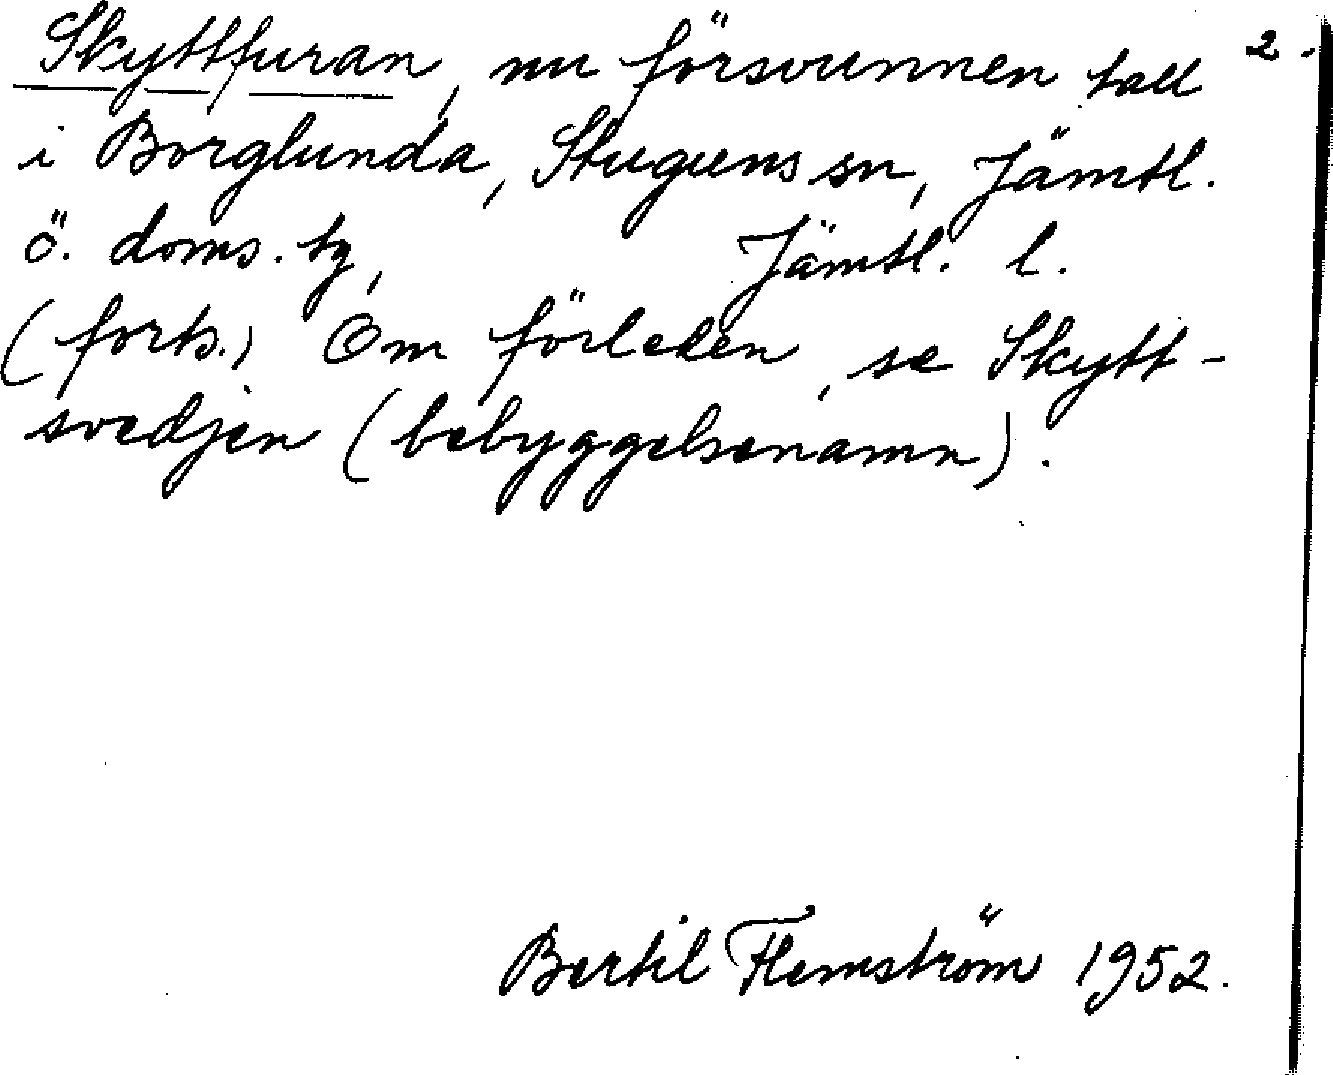 Skyttfuran, nu försvunnen tall 2.
i Borglunda, Stuguns sn, Jämtl.
ö. doms. tg, Jämtl. l.
(forts.) Om förleden, se Skytt-
svedjen (bebyggelsenamn).
Bertil Flemström 1952.